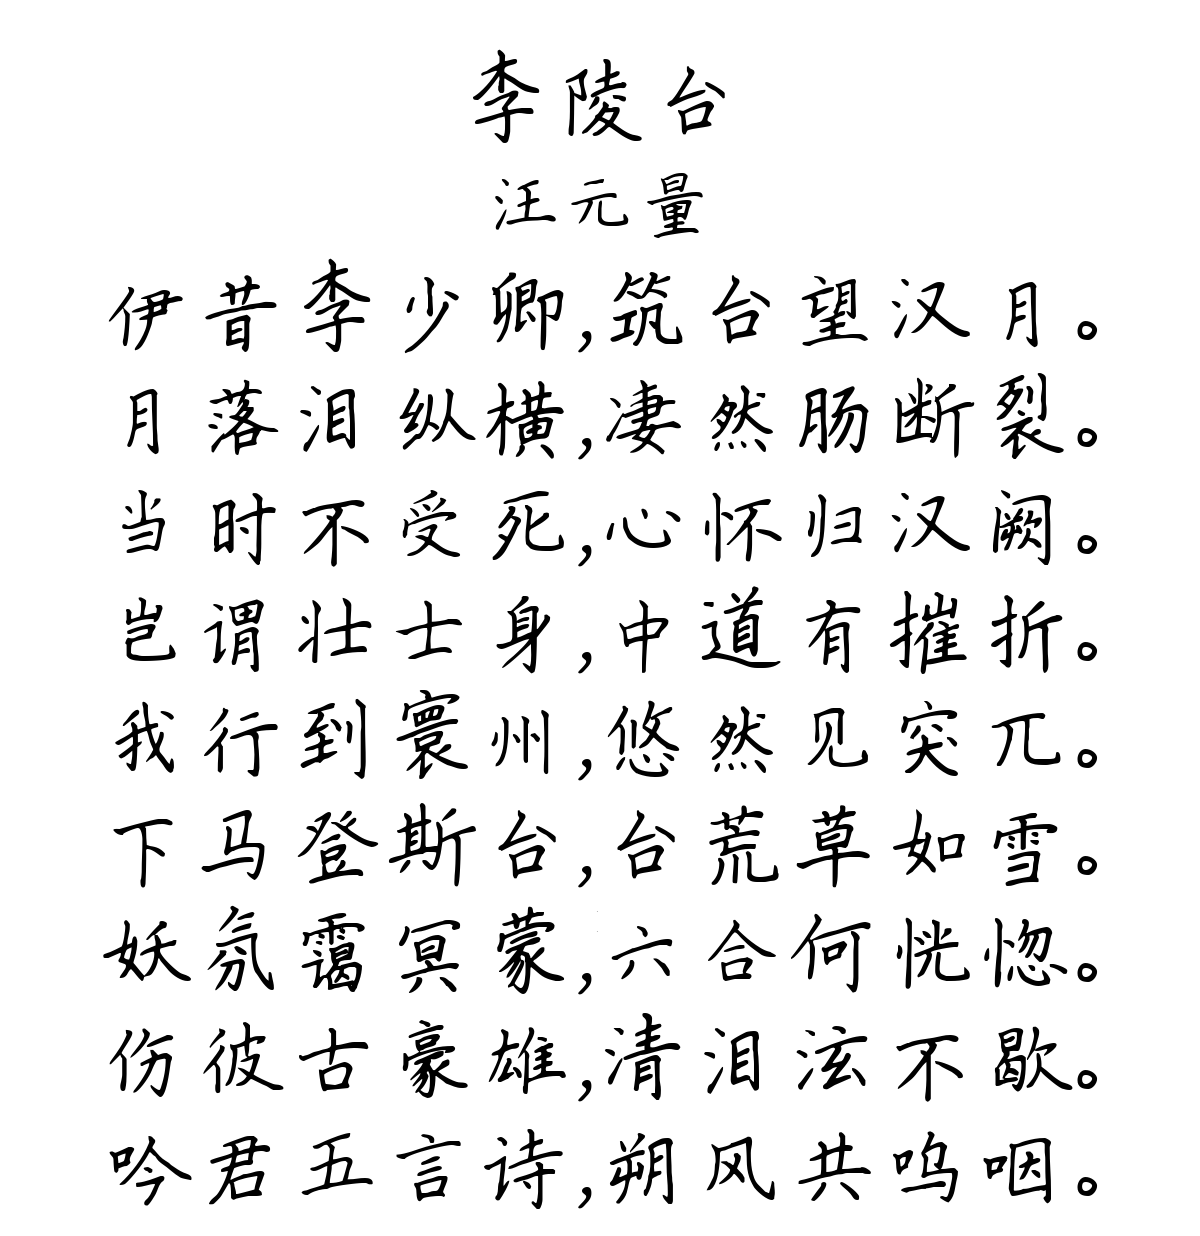 李陵台
汪元量
伊昔李少卿,筑台望汉月。
月落泪纵横,凄然肠断裂。
当时不受死,心怀归汉阙。
岂谓壮士身,中道有摧折。
我行到寰州,悠然见突兀。
下马登斯台,台荒草如雪。
妖氛霭冥蒙,六合何恍惚。
伤彼古豪雄,清泪泫不歇。
吟君五言诗,朔风共呜咽。